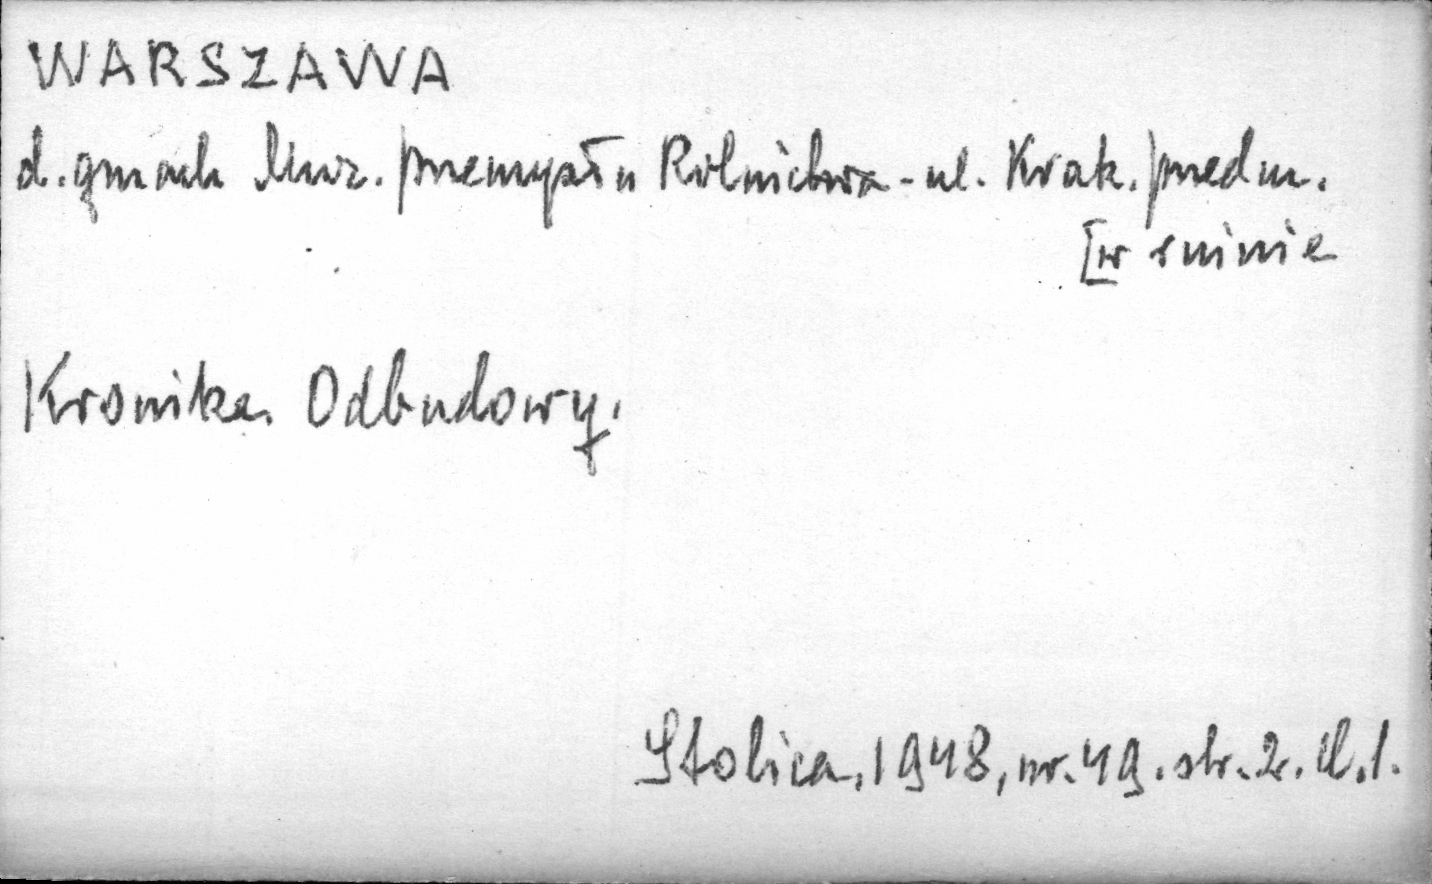 WARSZAWA
d. gmach Muz. przemysłu Rolnictwa - ul. Krak. przedm.
[w ruinie
Kronika Odbudowy.
Stolica, 1948, nr. 49. str. 2. il. 1.